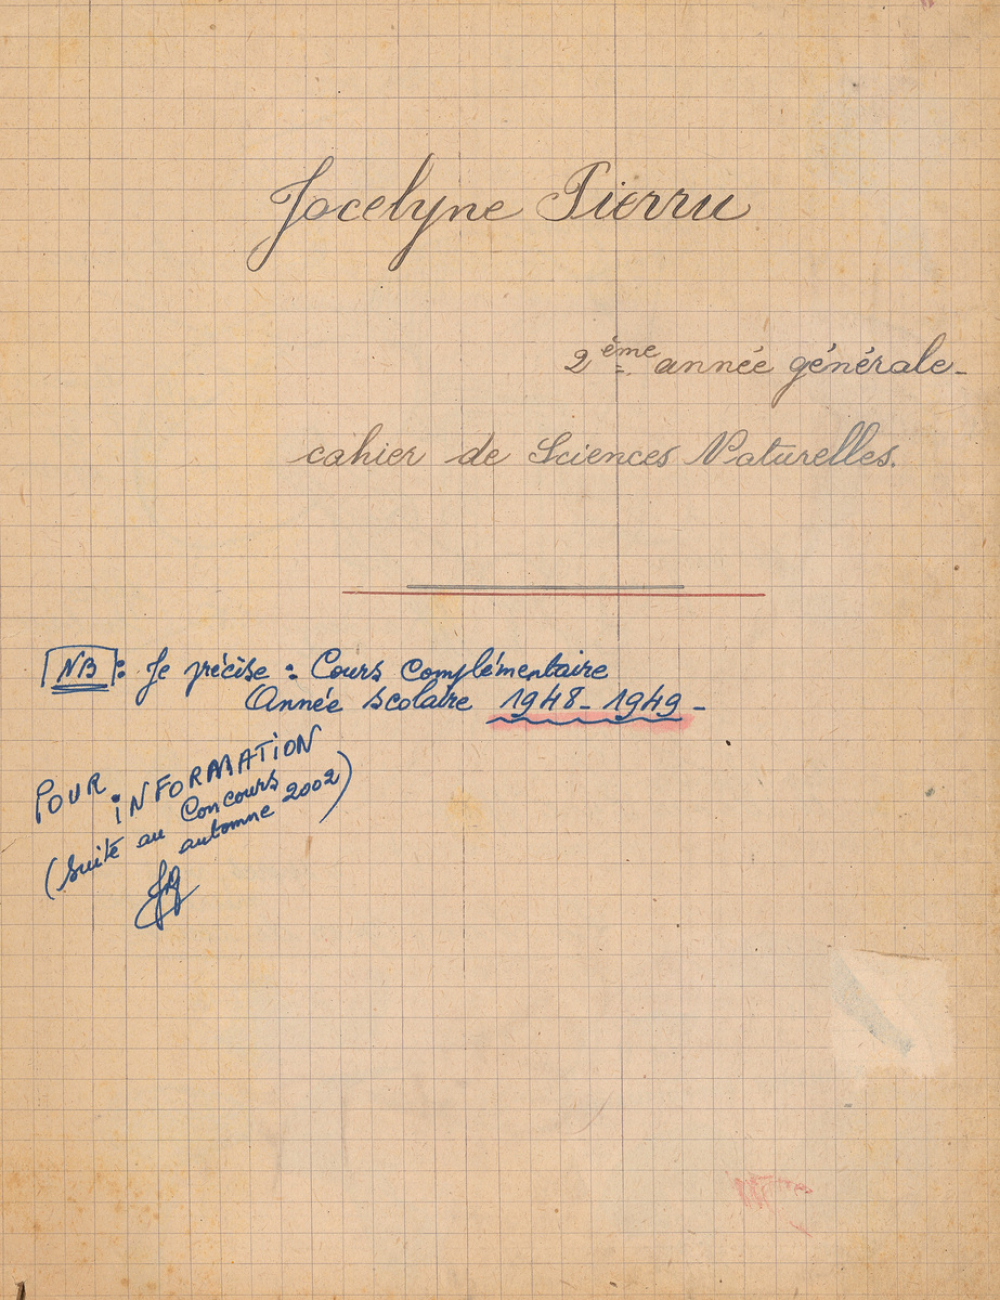 Jocelyne Pierru
2ème année générale-
cahier de Sciences Naturelles.
NB: Je précise : Cours Complémentaire
Année scolaire 1948-1949-
POUR INFORMATION
(suite au Concours
automne 2002)